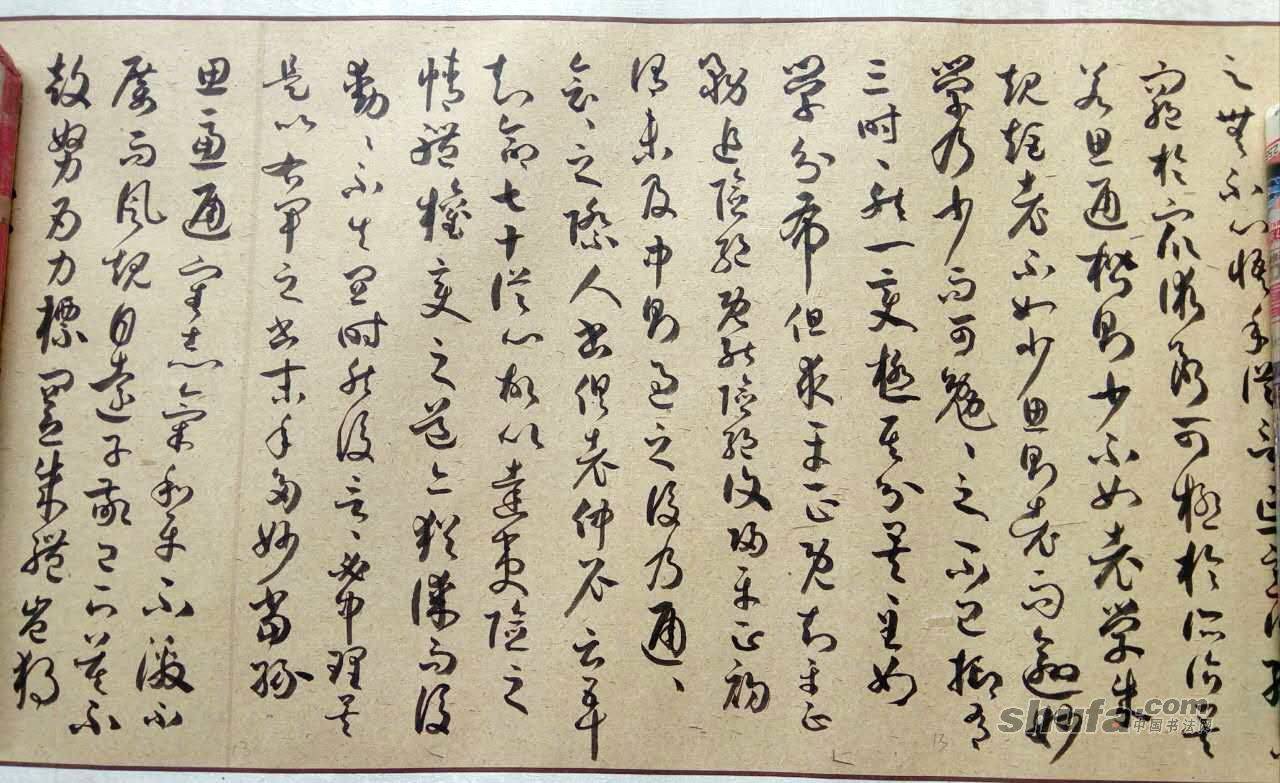 之無不心悟手從
窮於眾術斷可極於所詣矣
若思通楷則少不如老學成
規矩老不如少思則老而逾妙
學乃少而可勉々之不已抑有
三時々然一變極其分矣至如
學分布但求平正既知平正
務追險絕既能險絕復歸平正初
謂未及中則過之後乃通々
會々之際人書俱老仲尼云五十
知命七十從心故以達夷險之
情體權變之道亦猶謀而後
動々不失宜時然後言々必中理矣
是以右軍之書末年多妙當緣
思慮通審志氣和平不激不
厲而風規自遠子敬已下莫不
鼓努為力標置成體豈獨
shufa.com
中国书法网